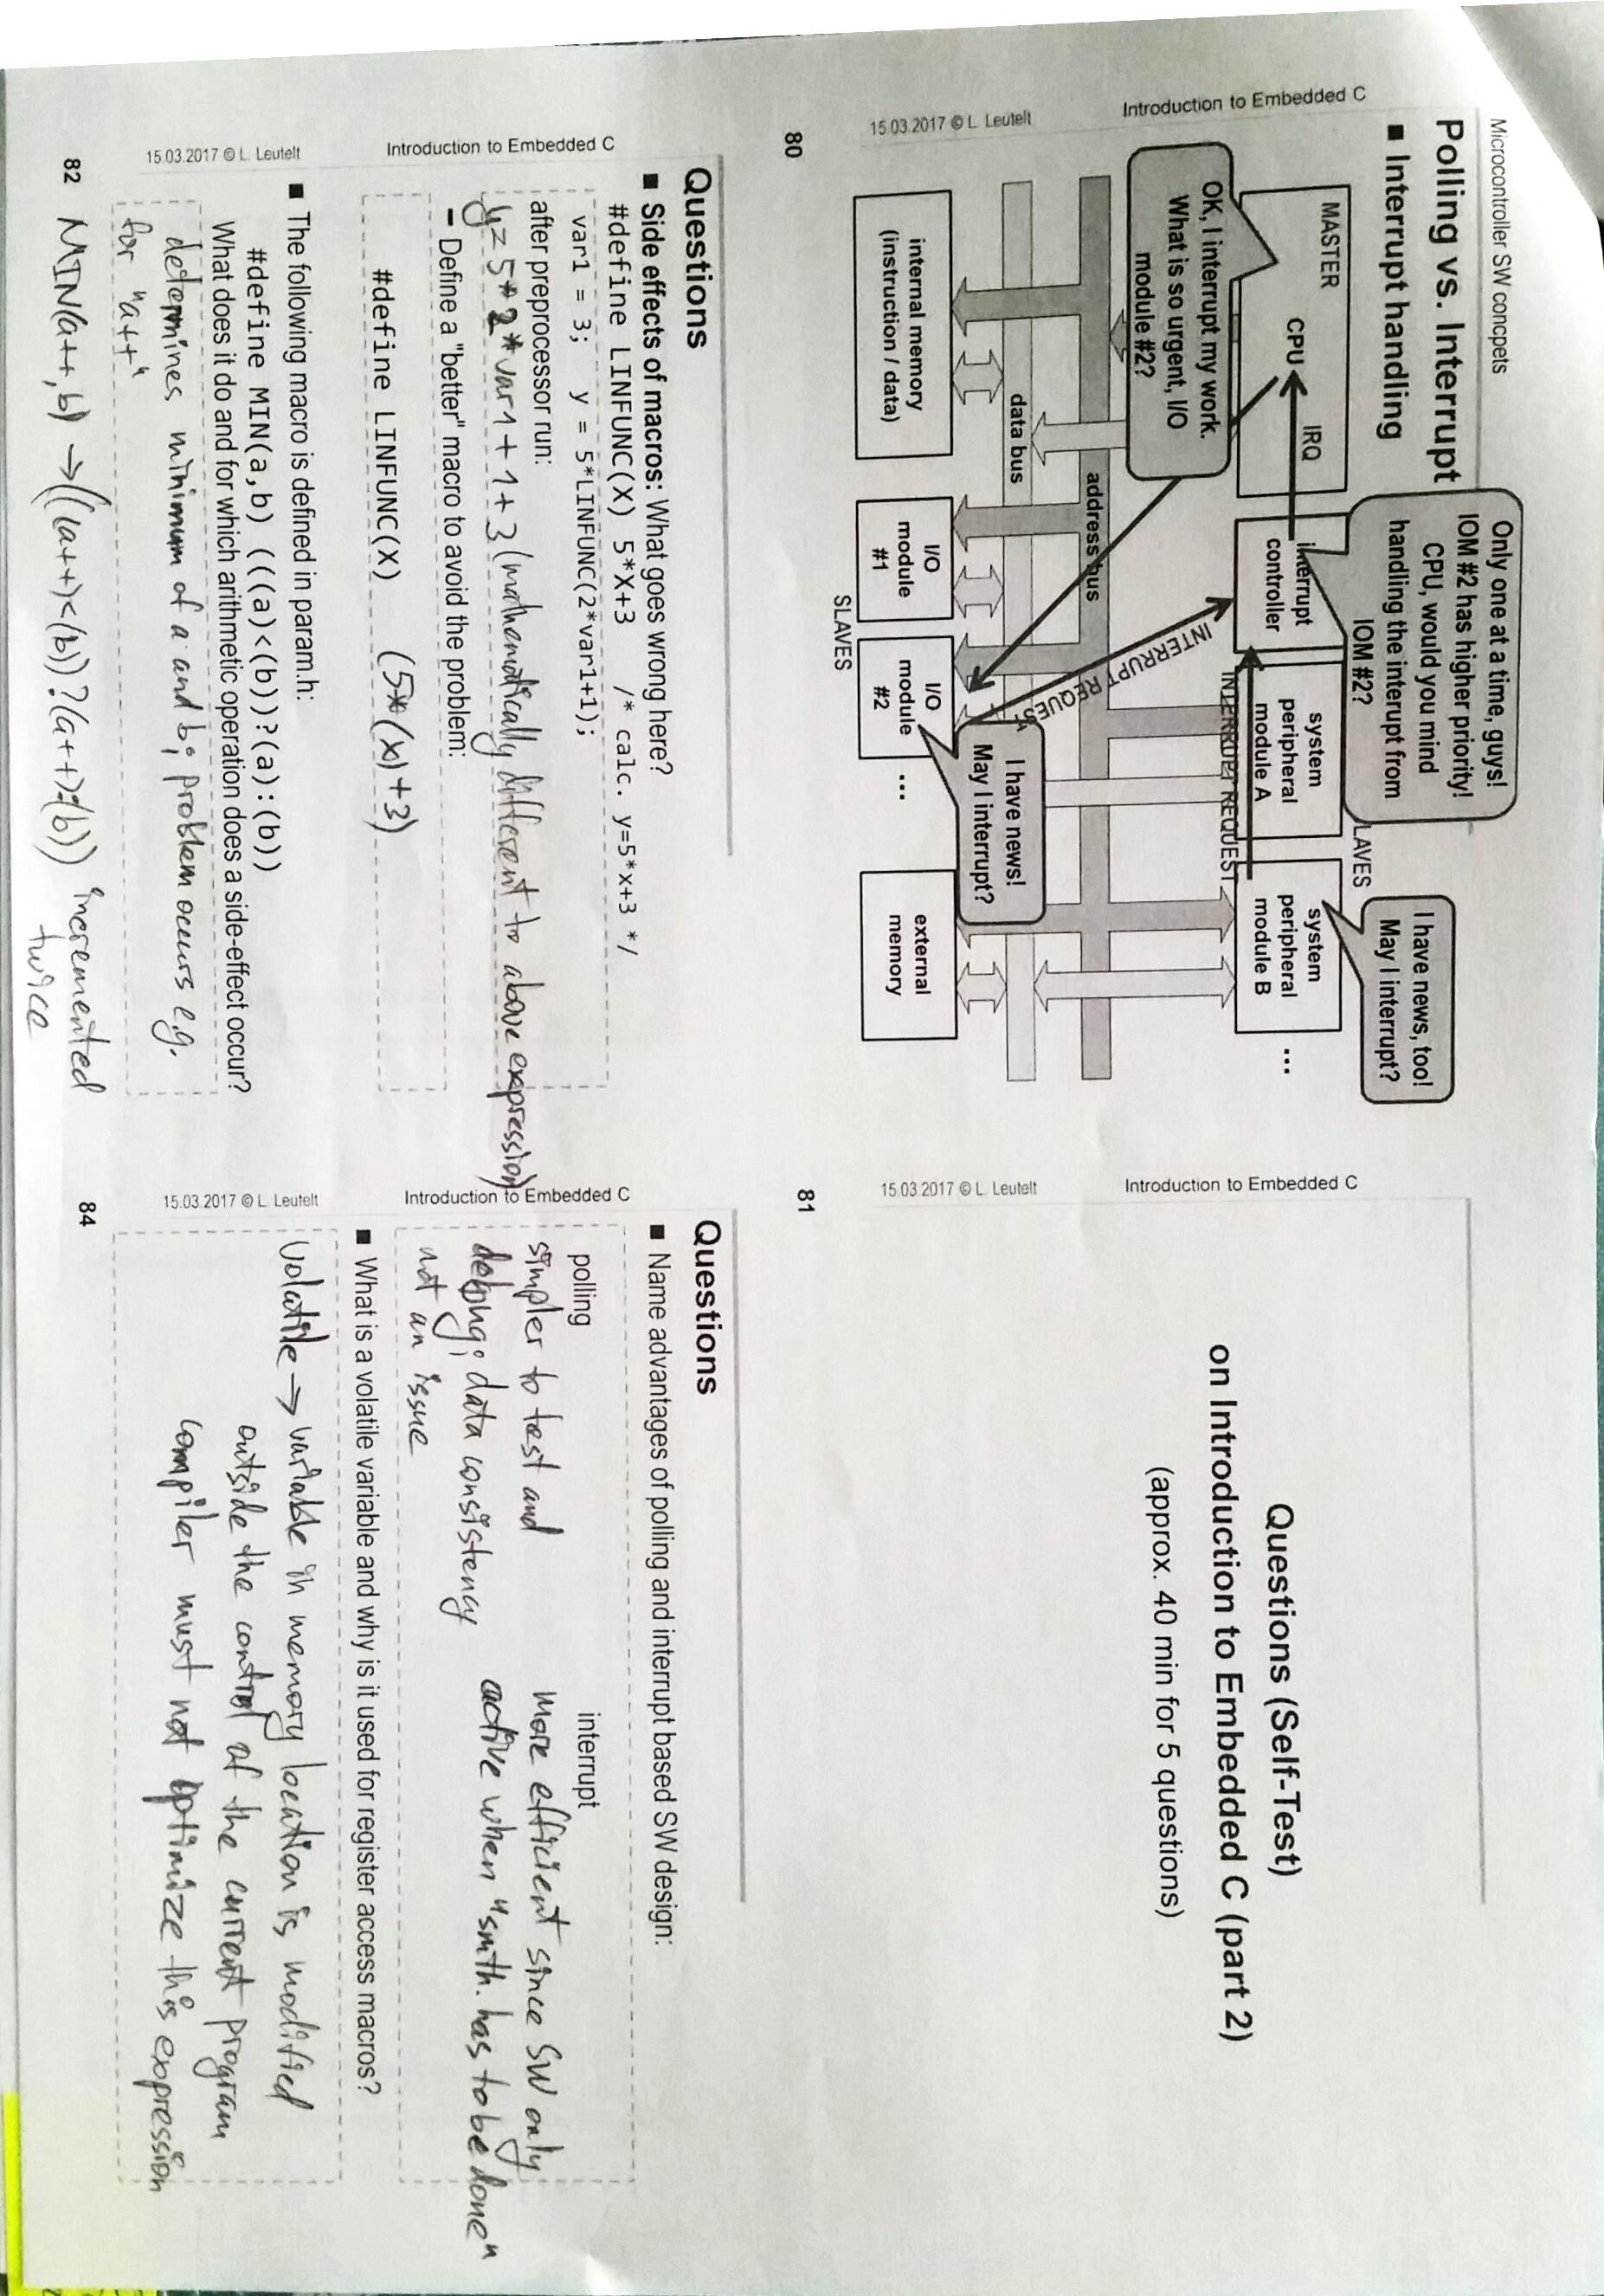 Microcontroller SW concpets
Polling vs. Interrupt
■ Interrupt handling
Only one at a time, guys!
IOM #2 has higher priority!
CPU, would you mind
handling the interupt from
IOM #2?
I have news, too!
May I interrupt?
LAVES
MASTER
CPU
IRQ
interrupt
controller
system
peripheral
module A
system
peripheral
module B
...
INTERRUPT REQUEST
OK, I interrupt my work.
What is so urgent, I/O
module #2?
INTERRUPT REQUEST
address bus
data bus
I have news!
May I interrupt?
internal memory
(instruction / data)
I/O
module
#1
I/O
module
#2
...
external
memory
SLAVES
Introduction to Embedded C
15.03.2017 © L. Leutelt
80
Questions (Self-Test)
on Introduction to Embedded C (part 2)
(approx. 40 min for 5 questions)
Introduction to Embedded C
15.03.2017 © L. Leutelt
81
Questions
■ Side effects of macros: What goes wrong here?
#define LINFUNC(X) 5*X+3 /* calc. y=5*x+3 */
var1 = 3; y = 5*LINFUNC(2*var1+1);
after preprocessor run:
y = 5*2*var1+1+3 (mathematically different to above expression)
– Define a "better" macro to avoid the problem:
#define LINFUNC(X) (5*(x)+3)
■ The following macro is defined in param.h:
#define MIN(a,b) (((a)<(b))?(a):(b))
What does it do and for which arithmetic operation does a side-effect occur?
determines minimum of a and b; problem occurs e.g.
for "a++"
MIN(a++,b) →(((a++)<(b))?(a++):(b)) incremented
twice
Introduction to Embedded C
15.03.2017 © L. Leutelt
82
Questions
■ Name advantages of polling and interrupt based SW design:
polling
simpler to test and
debug; data consistency
not an issue
interrupt
more efficient since SW only
active when "smth. has to be done"
■ What is a volatile variable and why is it used for register access macros?
volatile → variable in memory location is modified
outside the control of the current program
compiler must not optimize this expression
Introduction to Embedded C
15.03.2017 © L. Leutelt
84